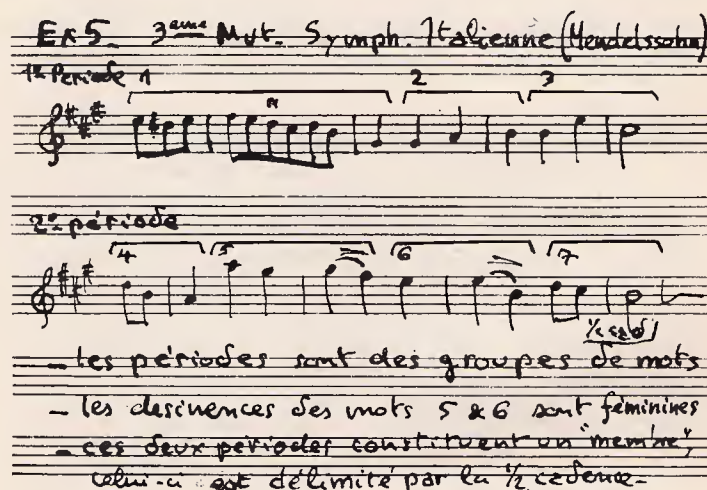 Ex 5_ 3ème Mvt. Symph. Italienne (Mendelssohn)
1e Période 1 2 3
2e période
4 5 6 7
1/2 cad
_ les périodes sont des groupes de mots
_ les desinences des mots 5 & 6 sont féminines
_ ces deux périodes constituent un "membre",
celui-ci est délimité par la 1/2 cadence_